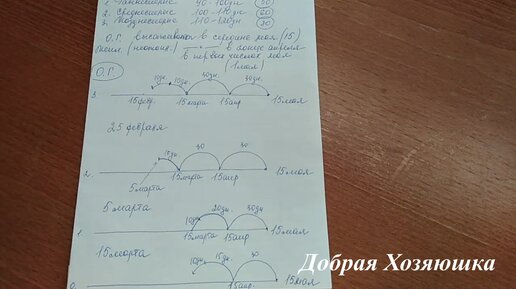 1. Раннеспелые 90-100дн. (50)
2. Среднеспелые 100-110дн (60)
3. Позднеспелые 110-120дн (70)
О.Г. высаживают в середине мая (15)
(неотапл.) в конце апреля
в первых числах мая
(1 мая)
О.Г.
10дн. 10дн. 30дн. 30дн.
3. 15фев. 15марта 15апр 15мая
25 февраля
10дн. 30 30
2. 5марта 15марта 15апр 15мая
5марта
10дн 20дн. 30дн.
1. 15марта 15апр 15мая
15марта
10дн 15дн. 30
15апр 15мая
Добрая Хозяюшка